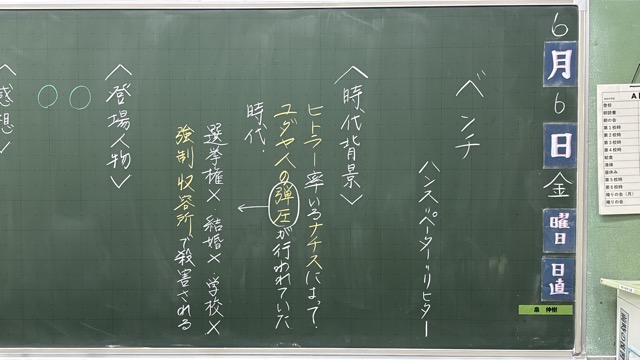 6月6日金曜日
日直
ベンチ
ハンス゠ペーター゠リヒター
〈時代背景〉
ヒトラー率いるナチスによって、
ユダヤ人の弾圧が行われていた
時代.
選挙権× 結婚× 学校×
強制収容所で殺害される
〈登場人物〉
○○
〈感想〉
登校
朝の会
第1校時
第2校時
第3校時
第4校時
給食
清掃
昼休み
第5校時
第6校時
帰りの会